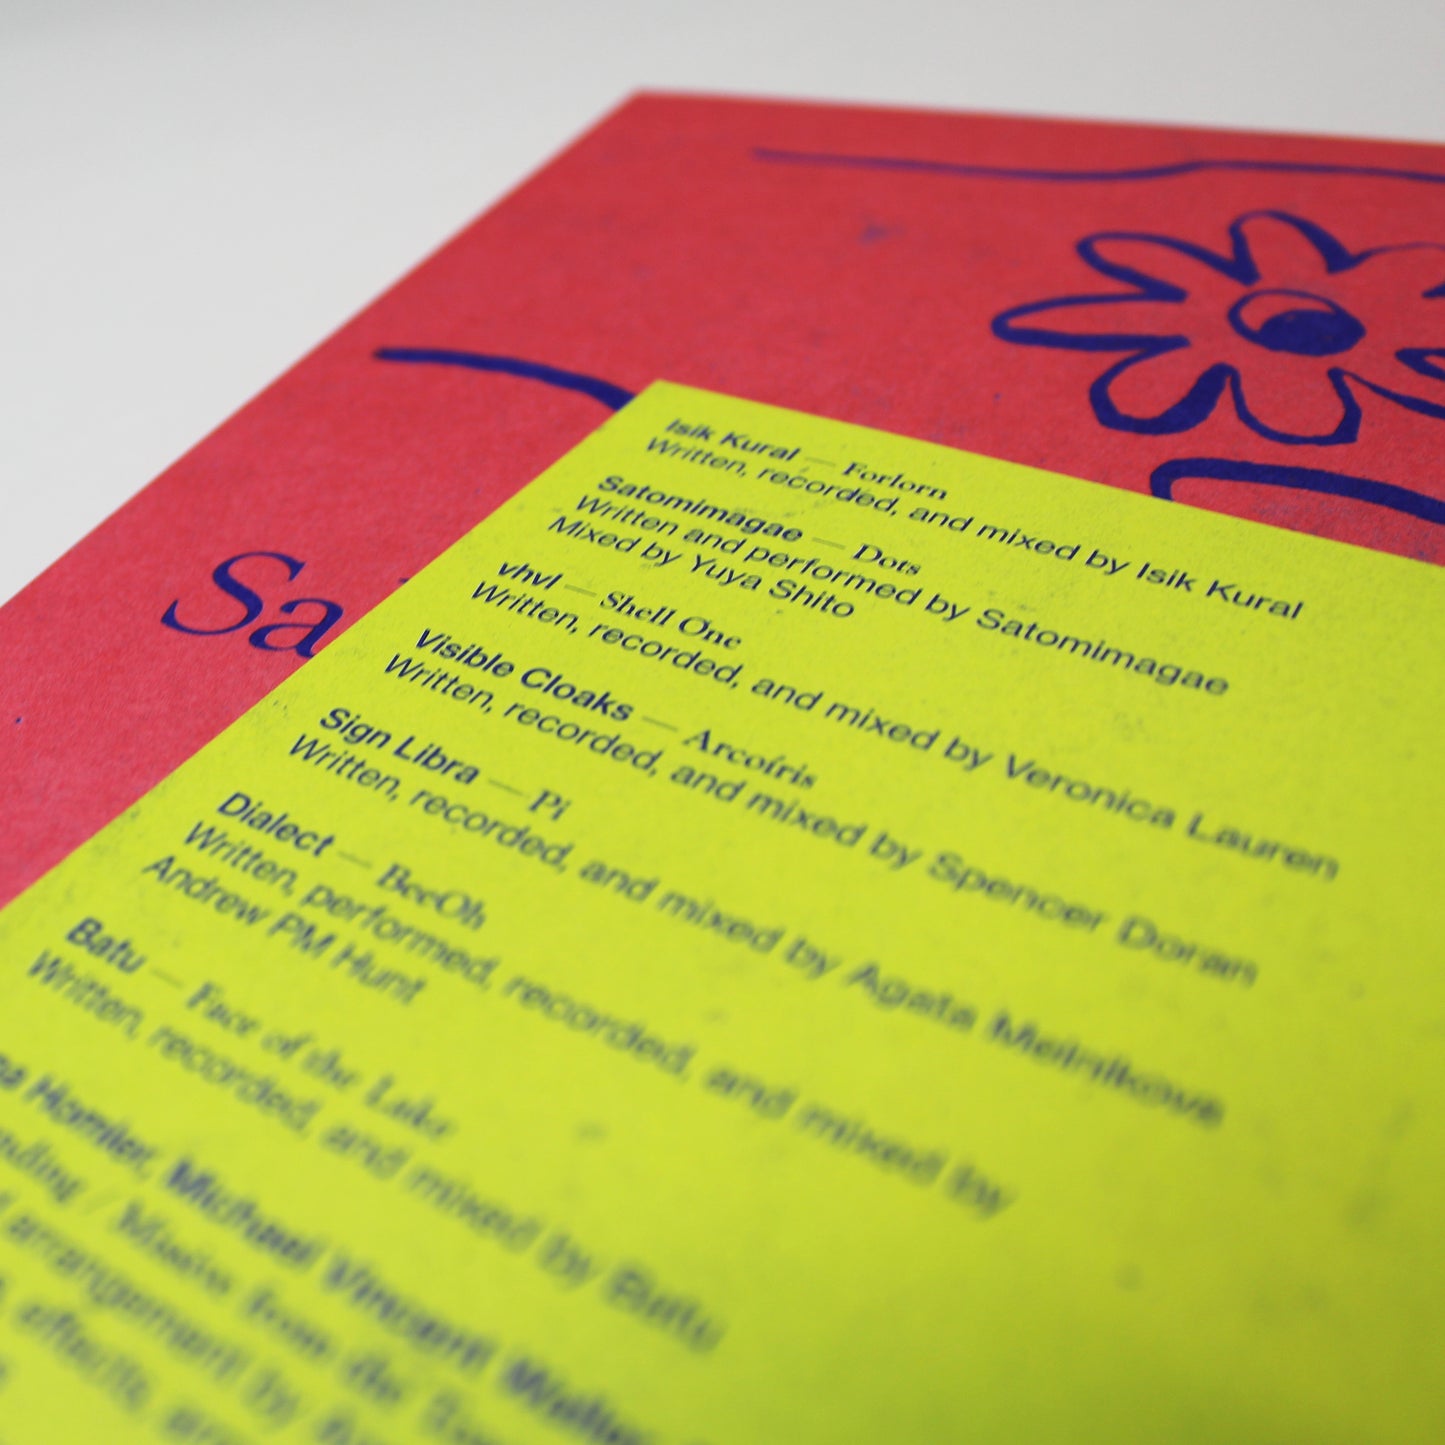 Sa
Isik Kural — Forlorn
Written, recorded, and mixed by Isik Kural
Satomimagae — Dots
Written and performed by Satomimagae
Mixed by Yuya Shito
vhvl — Shell One
Written, recorded, and mixed by Veronica Lauren
Visible Cloaks — Arcoíris
Written, recorded, and mixed by Spencer Doran
Sign Libra — Pi
Written, recorded, and mixed by Agata Melnikova
Dialect — BeeOh
Written, performed, recorded, and mixed by
Andrew PM Hunt
Batu — Face of the Lake
Written, recorded, and mixed by Batu
Homler, Michael Vincent
/ Missive from the
arrangement by
effects,